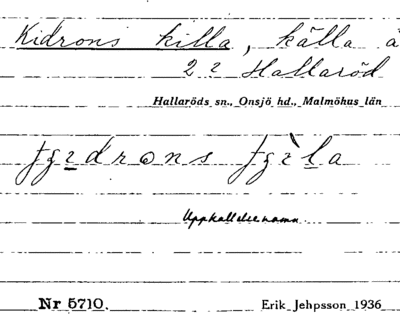 Kidrons killa, källa å
2 2 Hallaröd
Hallaröds sn., Onsjö hd., Malmöhus län
Uppkallelsenamn.
Nr 5710. Erik Jehpsson 1936